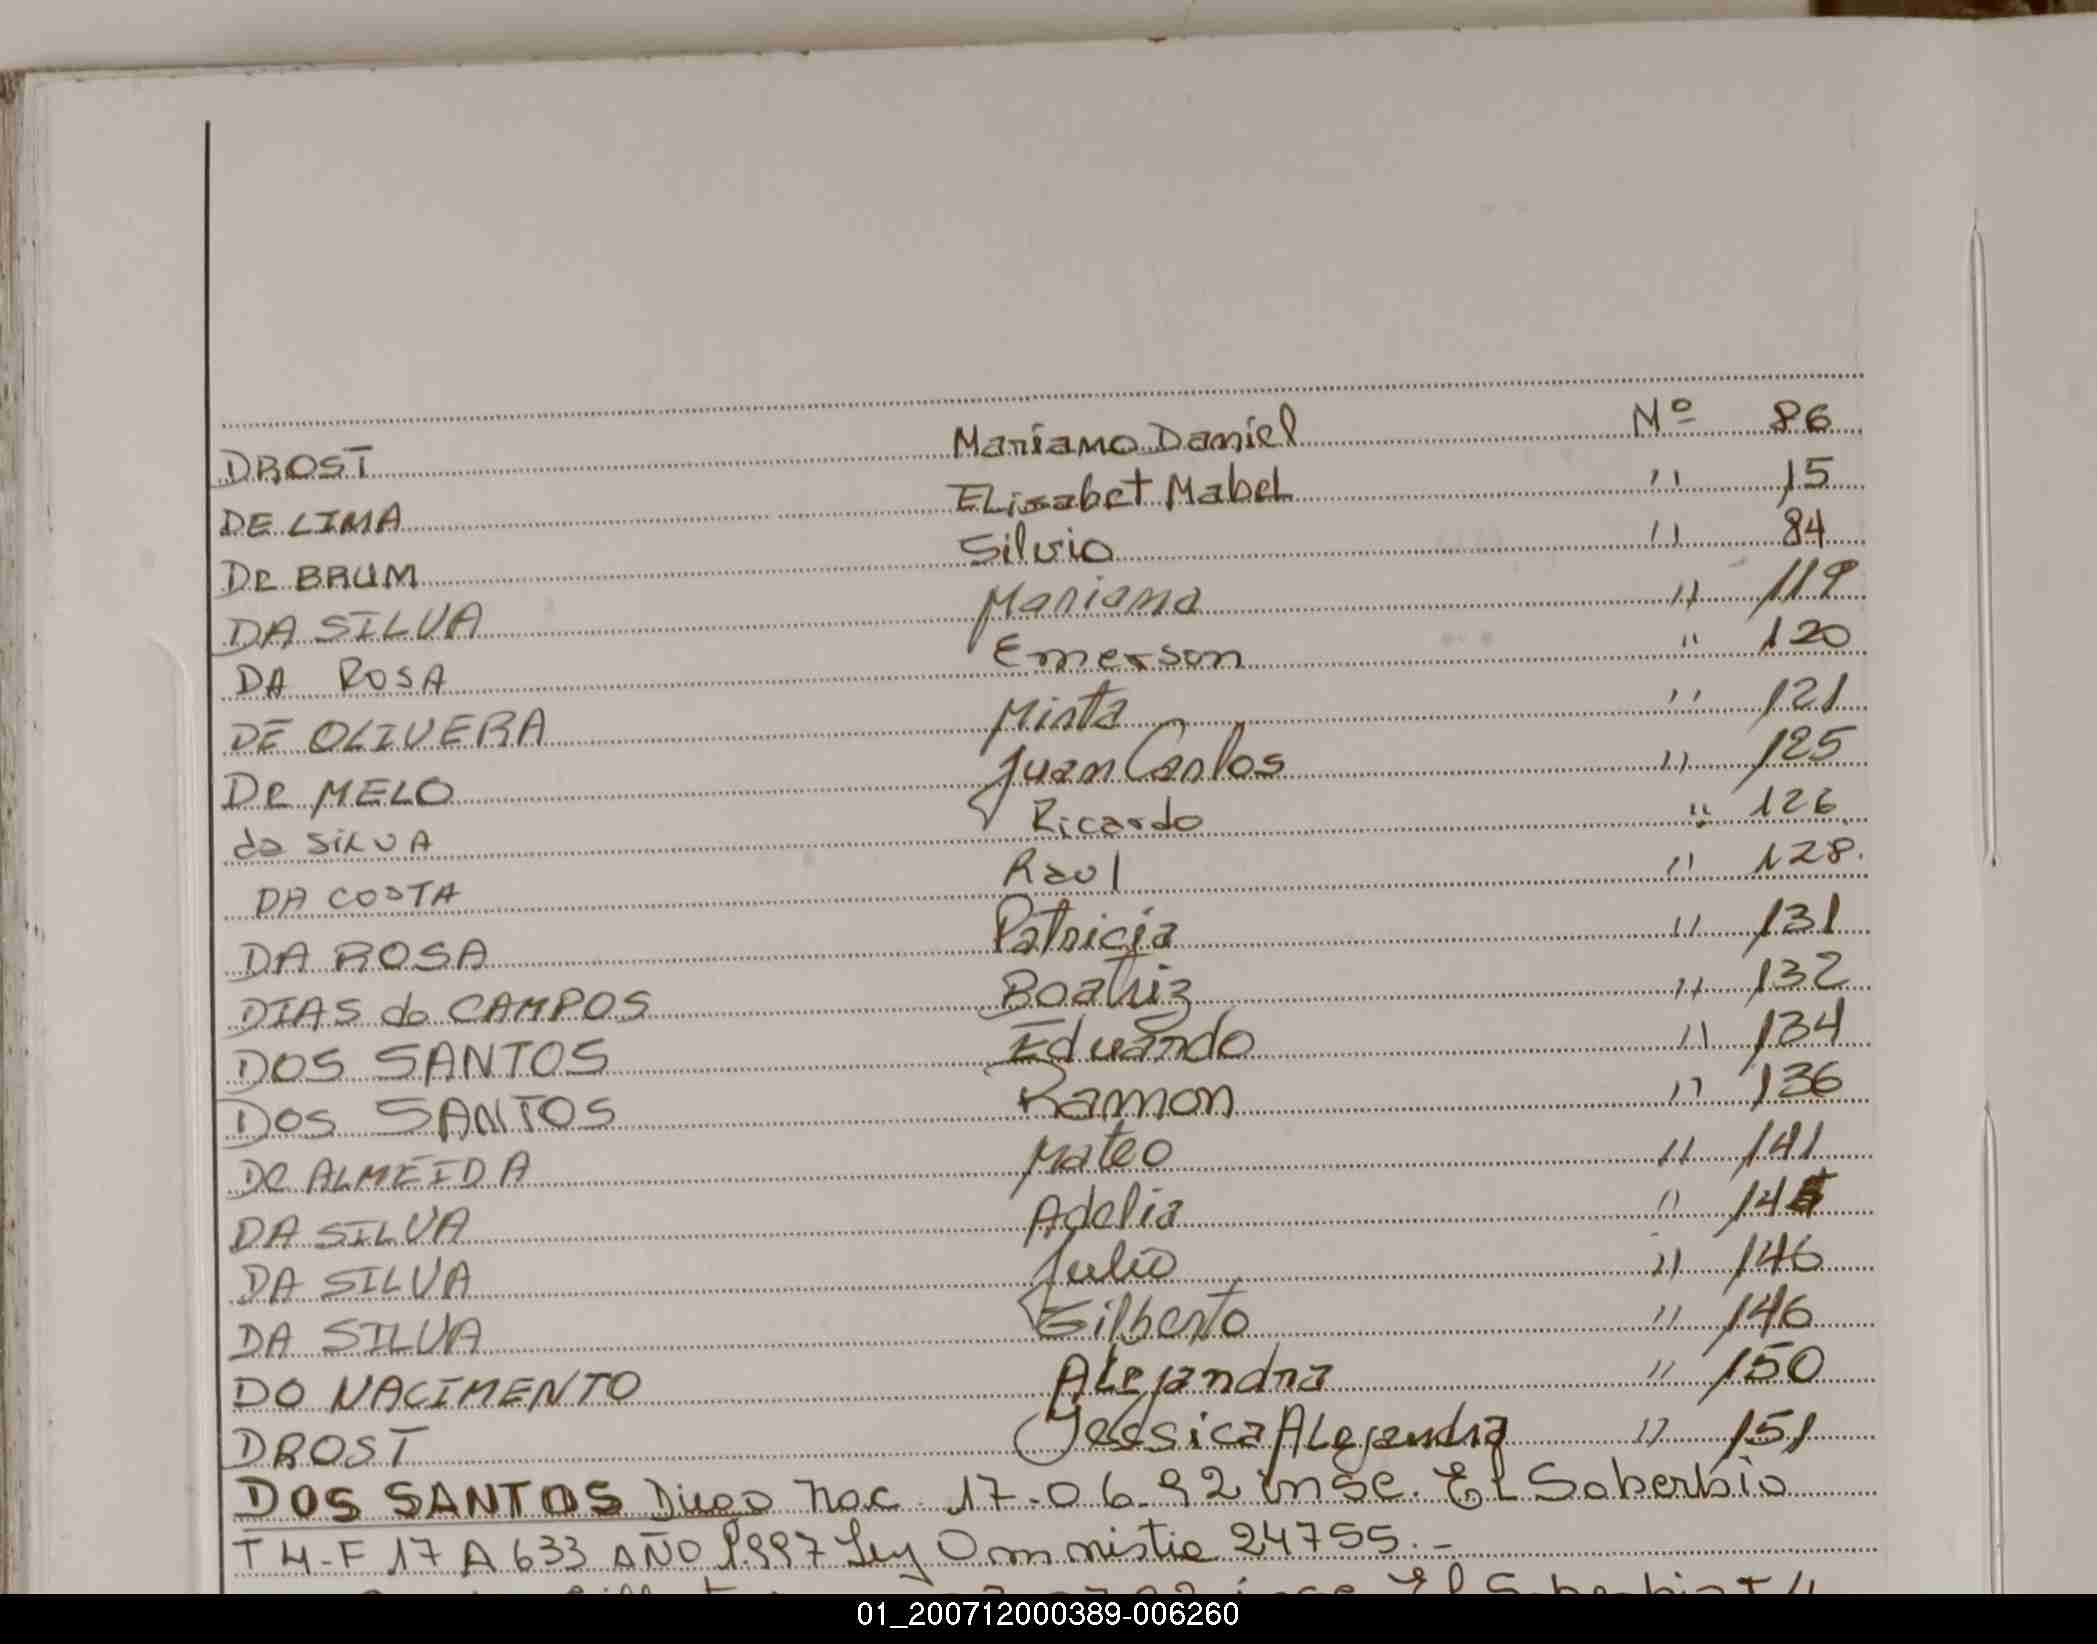 DROST Mariano Daniel Nº 86
DE LIMA ELisabet Mabel " 15
De BRUM Silvio " 84
DA SILVA Mariana " 119
DA ROSA Emerson " 120
DE OLIVERA Mirta " 121
De MELO Juan Carlos " 125
da SILVA Ricardo " 126
DA COSTA Raul " 128.
DA ROSA Patricia " 131
DIAS de CAMPOS Beatriz " 132
DOS SANTOS Eduardo " 134
DOS SANTOS Ramon " 136
DE ALMEIDA Mateo " 141
DA SILVA Adelia " 145
DA SILVA Julio " 146
DA SILVA Gilberto " 146
DO NACIMENTO ALejandra " 150
DROST Jessica ALejandra " 151
DOS SANTOS Diego nac. 17-06-92 insc. EL Soberbio
T 4-F 17 A 633 AÑO 1.997 Ley Omnistia 24755.-
01_200712000389-006260